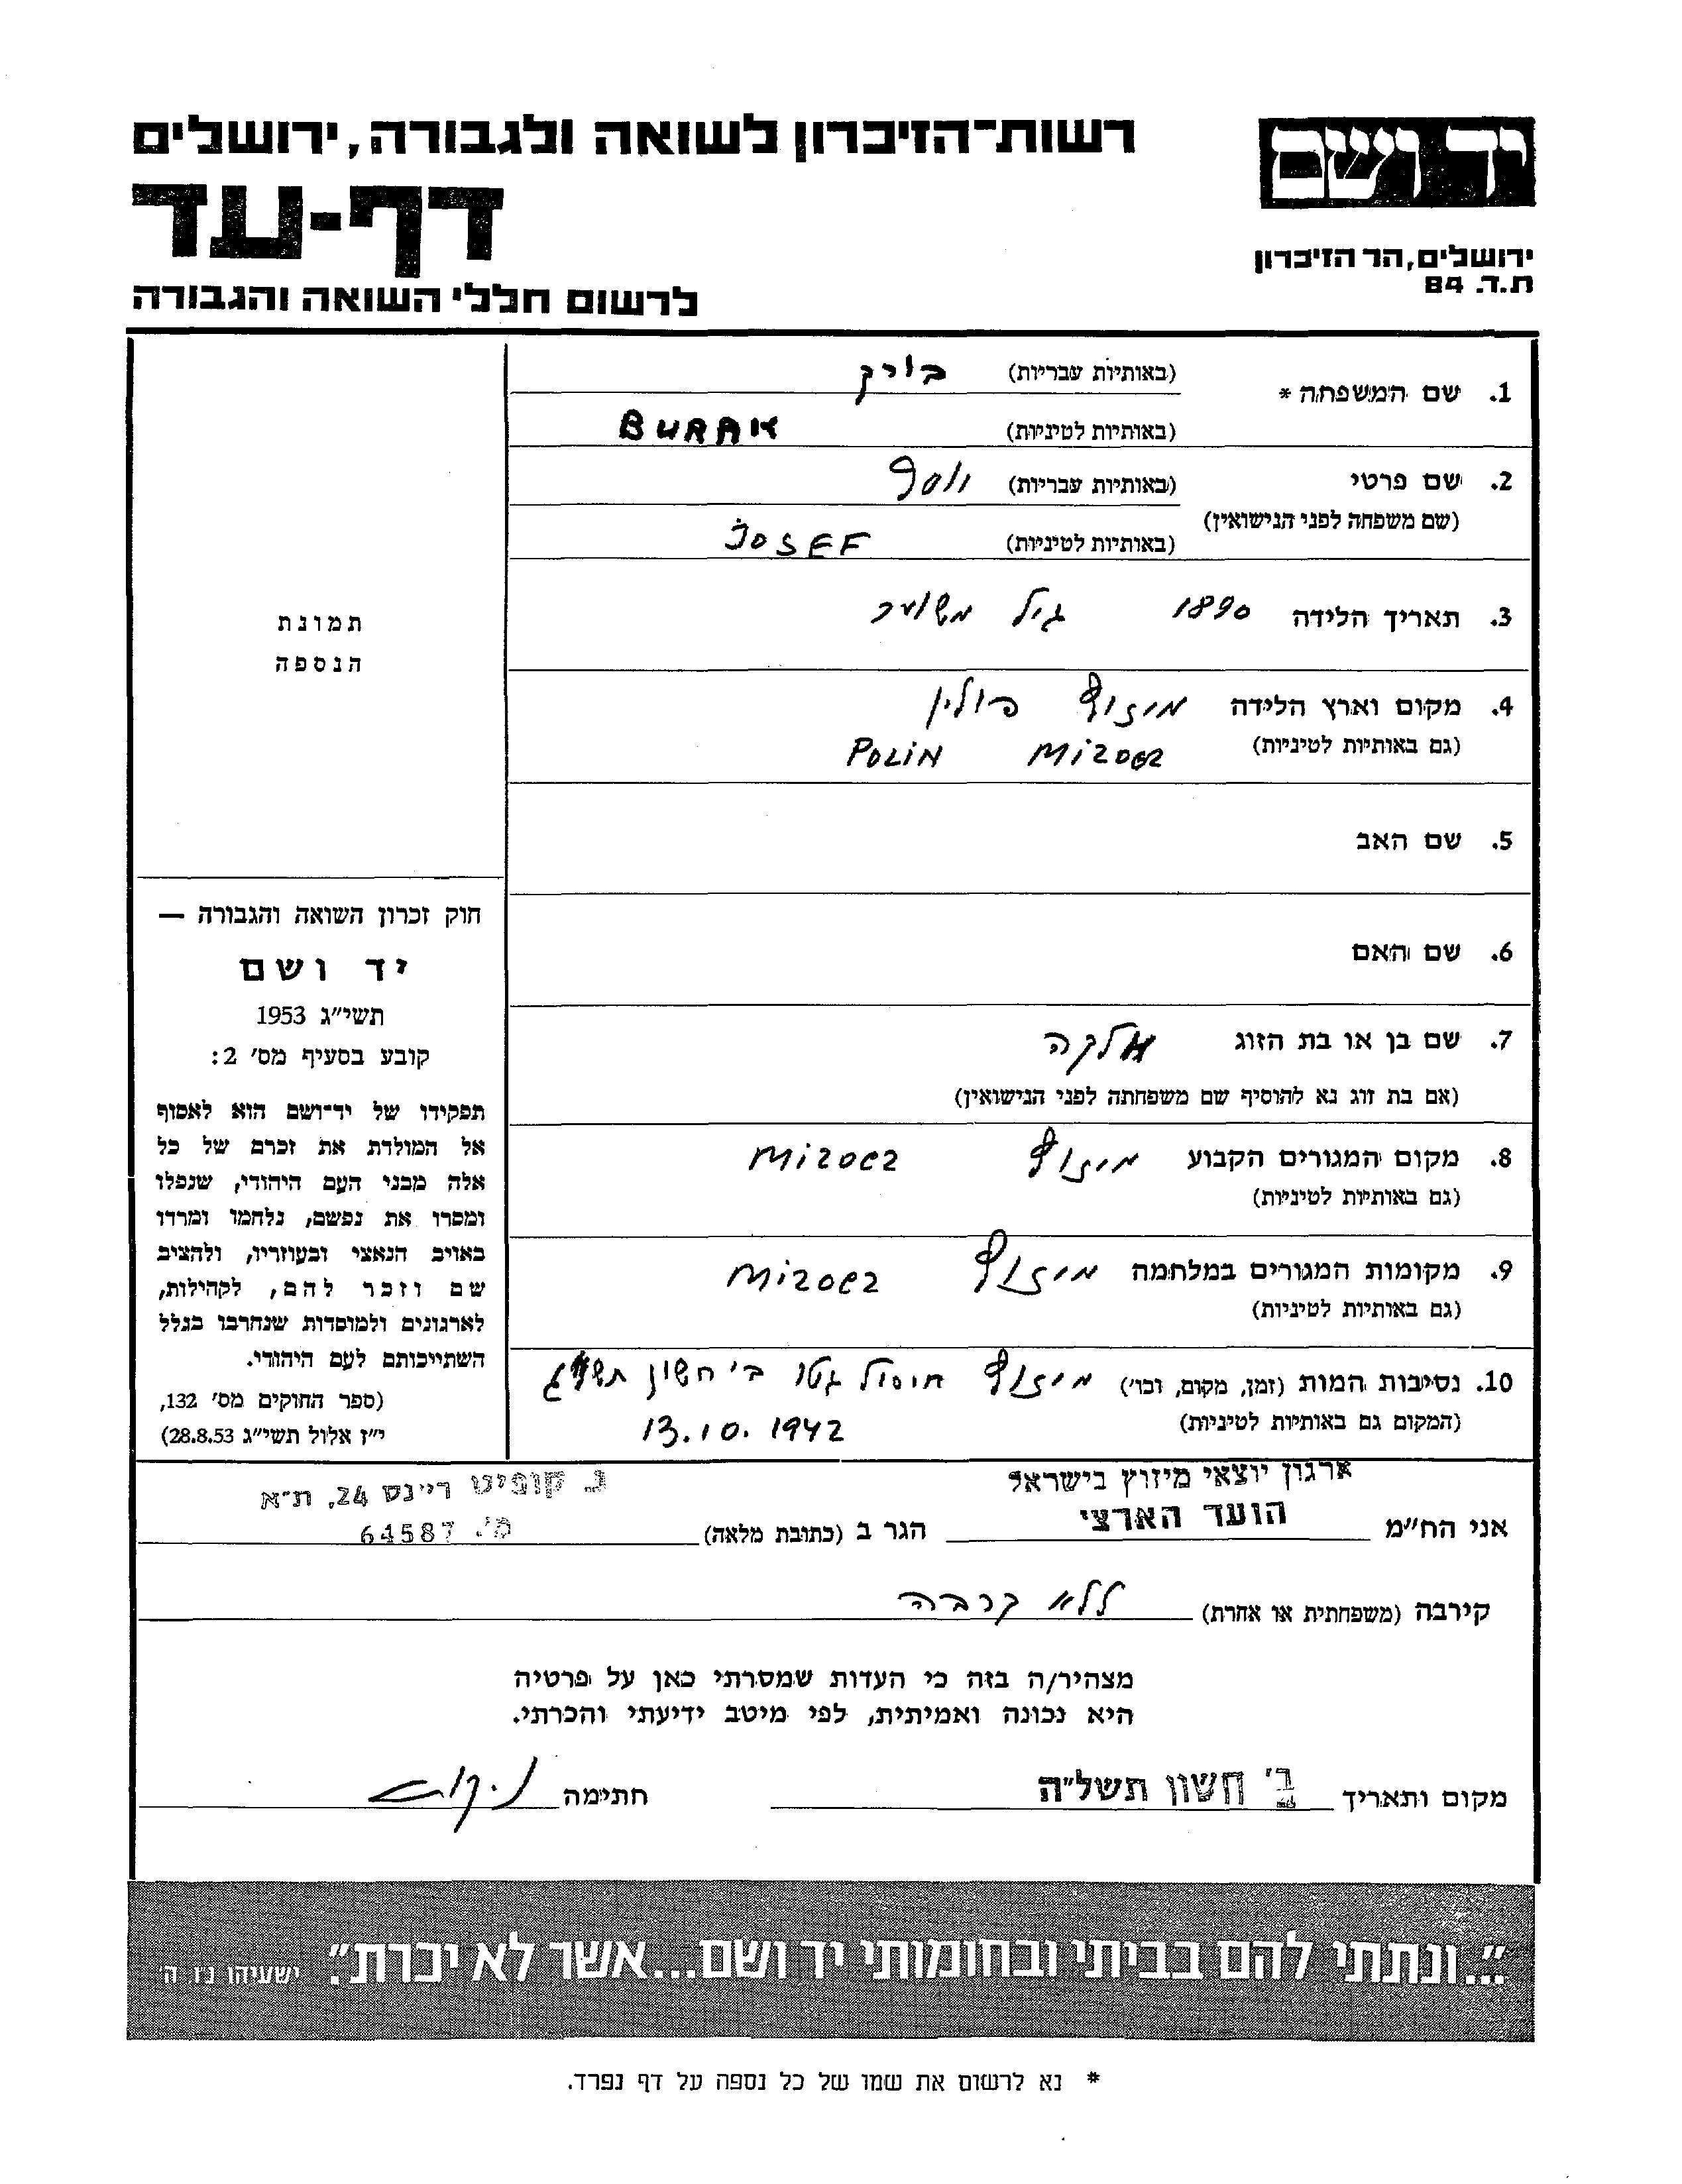 רשות־הזיכרון לשואה ולגבורה, ירושלים
יד ושם
דף-עד
ירושלים, הר הזיכרון
ת.ד. 84
לרשום חללי השואה והגבורה
1. שם המשפחה * (באותיות עבריות) בורק
(באותיות לטיניות) BURAK
2. שם פרטי (באותיות עבריות) יוסף
(שם משפחה לפני הנישואין)
(באותיות לטיניות) JOSEF
3. תאריך הלידה 1890 גיל משוער
4. מקום וארץ הלידה מיזוץ פולין
(גם באותיות לטיניות) MizOCZ POLiN
5. שם האב
6. שם האם
7. שם בן או בת הזוג מלקה
(אם בת זוג נא להוסיף שם משפחתה לפני הנישואין)
8. מקום המגורים הקבוע מיזוץ Mizocz
(גם באותיות לטיניות)
9. מקומות המגורים במלחמה מיזוץ Mizocz
(גם באותיות לטיניות)
10. נסיבות המות (זמן, מקום, וכו') מיזוץ חיסול גטו ב' חשון תש"ג
(המקום גם באותיות לטיניות) 13.10.1942
תמונת
הנספה
חוק זכרון השואה והגבורה —
יד ושם
תשי"ג 1953
קובע בסעיף מס' 2:
תפקידו של יד־ושם הוא לאסוף
אל המולדת את זכרם של כל
אלה מבני העם היהודי, שנפלו
ומסרו את נפשם, נלחמו ומרדו
באויב הנאצי ובעוזריו, ולהציב
שם וזכר להם, לקהילות,
לארגונים ולמוסדות שנחרבו בגלל
השתייכותם לעם היהודי.
(ספר החוקים מס' 132,
י"ז אלול תשי"ג 28.8.53)
ארגון יוצאי מיזוץ בישראל
נ. קופיט ריינס 24, ת"א
אני הח"מ הועד הארצי הגר ב (כתובת מלאה) 64587
קירבה (משפחתית או אחרת) ללא קרבה
מצהיר/ה בזה כי העדות שמסרתי כאן על פרטיה
היא נכונה ואמיתית, לפי מיטב ידיעתי והכרתי.
מקום ותאריך ב' חשון תשל"ה חתימה
"...ונתתי להם בביתי ובחומותי יד ושם...אשר לא יכרת". ישעיהו נ"ו ה'
* נא לרשום את שמו של כל נספה על דף נפרד.